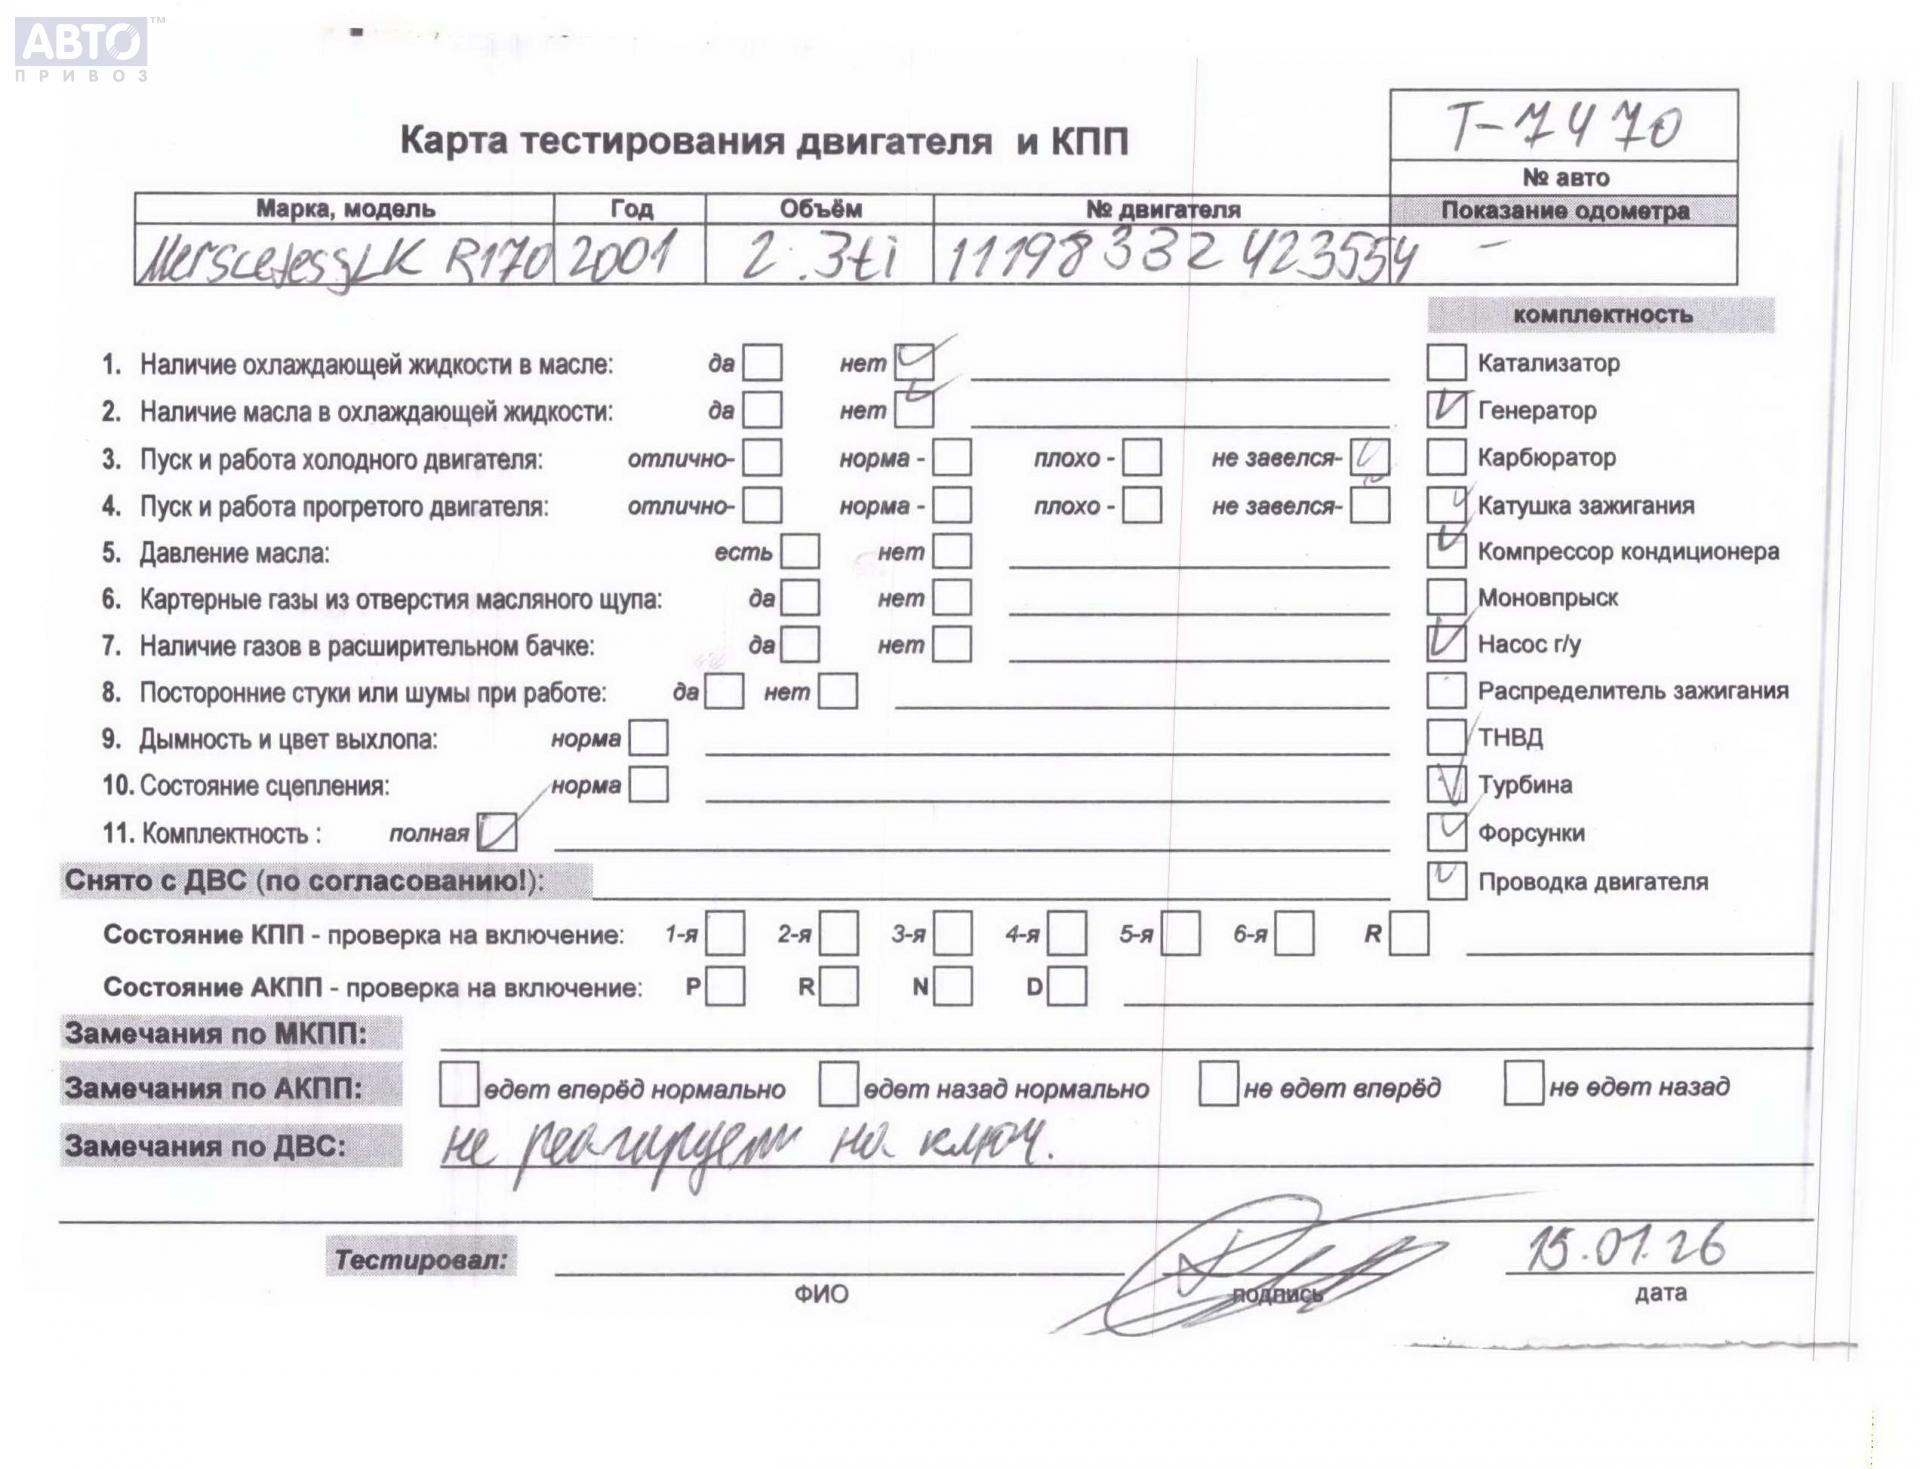 АВТО™
ПРИВОЗ
Т-7470
Карта тестирования двигателя и КПП
№ авто
Марка, модель Год Объём № двигателя Показание одометра
MerscedessLK R170 2001 2.3ti 11198332423554 -
комплектность
1. Наличие охлаждающей жидкости в масле: да нет Катализатор
2. Наличие масла в охлаждающей жидкости: да нет Генератор
3. Пуск и работа холодного двигателя: отлично- норма - плохо - не завелся- Карбюратор
4. Пуск и работа прогретого двигателя: отлично- норма - плохо - не завелся- Катушка зажигания
5. Давление масла: есть нет Компрессор кондиционера
6. Картерные газы из отверстия масляного щупа: да нет Моновпрыск
7. Наличие газов в расширительном бачке: да нет Насос г/у
8. Посторонние стуки или шумы при работе: да нет Распределитель зажигания
9. Дымность и цвет выхлопа: норма ТНВД
10. Состояние сцепления: норма Турбина
11. Комплектность : полная Форсунки
Снято с ДВС (по согласованию!): Проводка двигателя
Состояние КПП - проверка на включение: 1-я 2-я 3-я 4-я 5-я 6-я R
Состояние АКПП - проверка на включение: P R N D
Замечания по МКПП:
Замечания по АКПП: едет вперёд нормально едет назад нормально не едет вперёд не едет назад
Замечания по ДВС: не реагирует на ключ.
Тестировал: 15.01.26
ФИО подпись дата